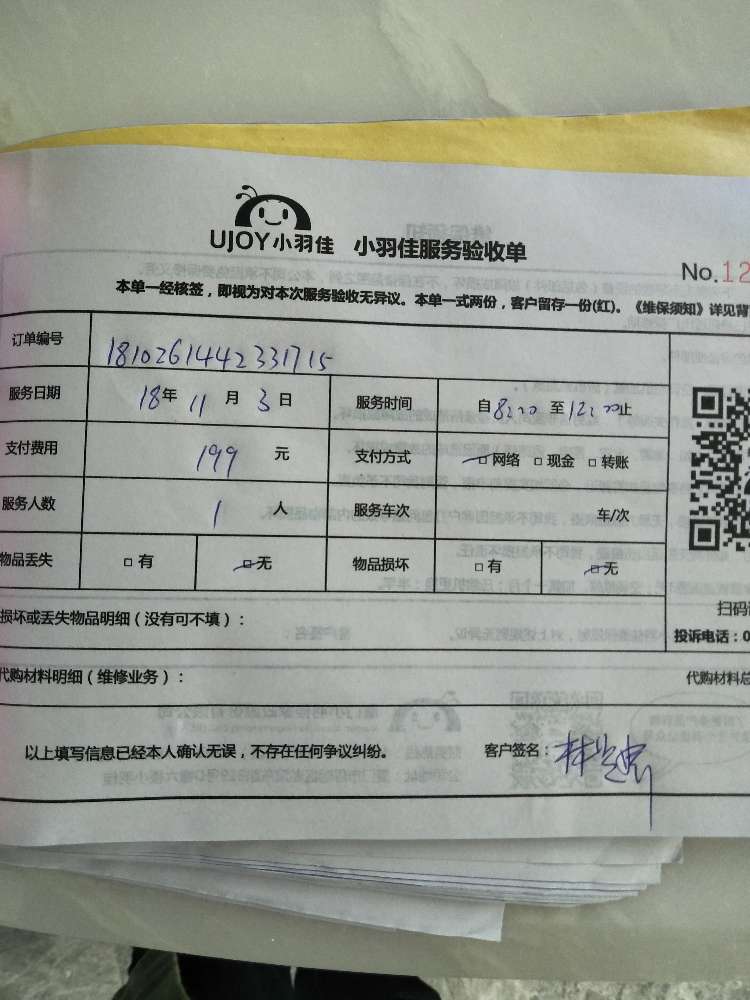 UJOY小羽佳 小羽佳服务验收单
No.12
本单一经核签，即视为对本次服务验收无异议。本单一式两份，客户留存一份(红)。《维保须知》详见背
订单编号 1810261442331715
服务日期 18年 11月 3日 服务时间 自8:00至12:00止
支付费用 199 元 支付方式 □网络 □现金 □转账
服务人数 1 人 服务车次 车/次
物品丢失 □有 □无 物品损坏 □有 □无
损坏或丢失物品明细（没有可不填）：
扫码
投诉电话：0
代购材料明细（维修业务）： 代购材料总
以上填写信息已经本人确认无误，不存在任何争议纠纷。 客户签名：林